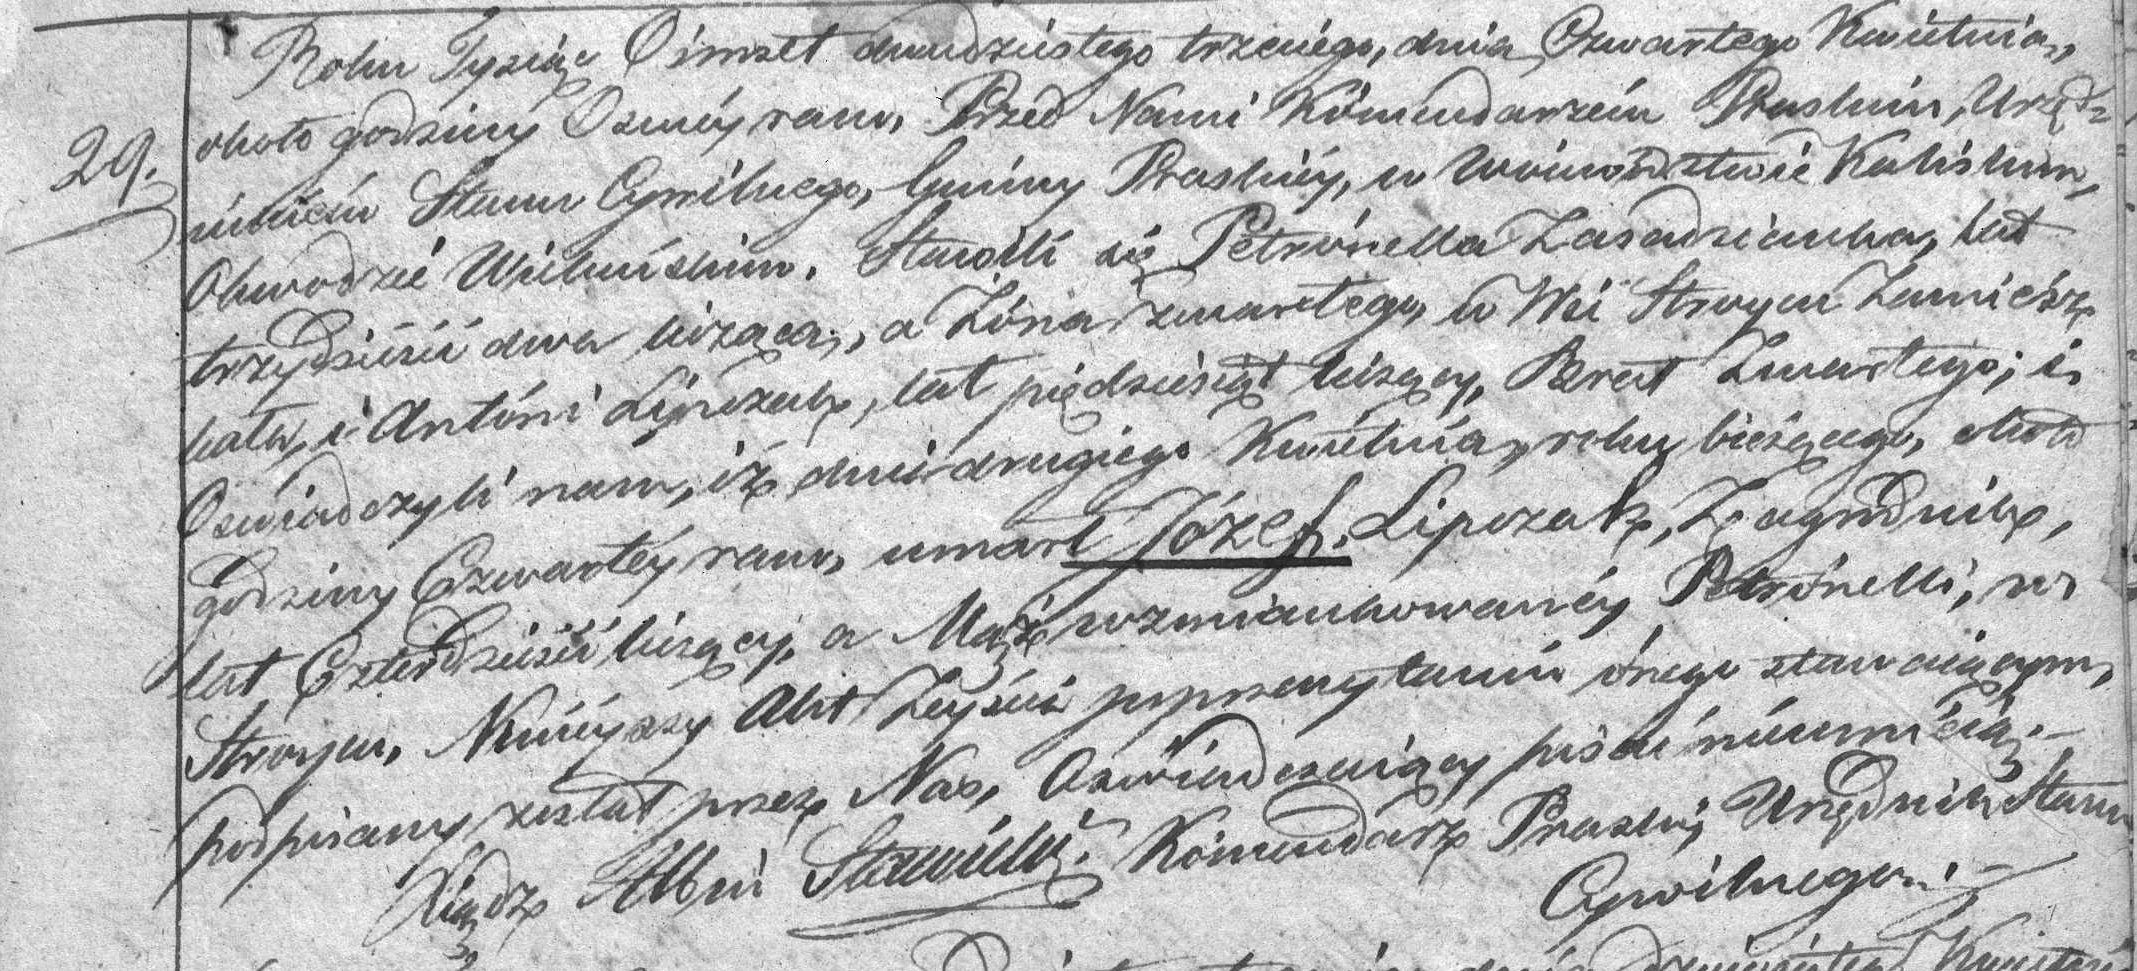 Roku Tysiąc Ośmset dwudziestego trzeciego, dnia Czwartego Kwietnia,
około godziny Osméy rano, Przed Nami Komendarzem Praskim, Urzęd-
nikiem Stanu Cywilnego, Gminy Praskiéy, w Woiewództwie Kaliskim,
Obwodzie Wieluńskim. Stawili się Petronella Zasadzianka, lat
trzydzieści dwa licząca, a Żona zmarłego, w Wsi Stroycu Zamiesz-
kała, i Antoni Lipczak, lat piędziesiąt liczący, Brat Zmarłego; i
Oświadczyli nam, iż dnia drugiego Kwietnia, roku bieżącego, około
godziny Czwartéy rano, umarł Józef Lipczak, Zagrodnik,
lat Czterdzieści liczący, a Mąż wzmiankowanéy Petronelli, w
Stroycu. Ninieyszy Akt Zeyścia po przeczytaniu onego stawaiącym,
podpisany został przez Nas, Oświadczaiący pisać nieumieią.
Xiądz Albin Komendarz Praski, Urzędnik Stanu
Cywilnego.
29.